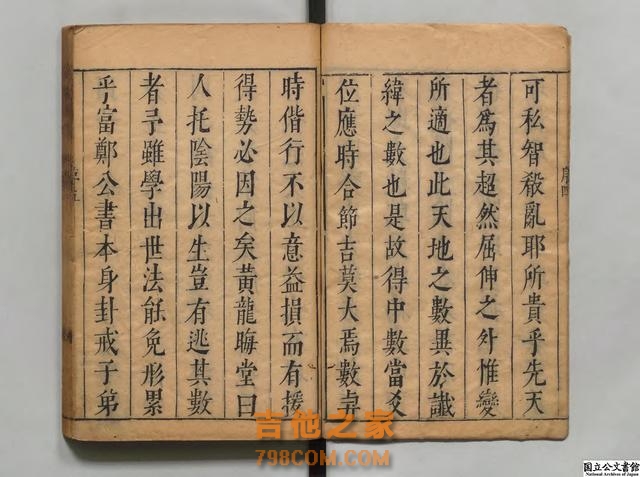 可私智殽亂耶所貴乎先天
者爲其超然屈伸之外惟變
所適也此天地之數異於讖
緯之數也是故得中數當爻
位應時合節吉莫大焉數與
時偕行不以意益損而有援
得勢必因之矣黃龍晦堂曰
人托陰陽以生豈有逃其數
者乎雖學出世法能免形累
乎富鄭公書本身卦戒子弟
序四
序五
吉他之家
798COM.COM
国立公文書館
National Archives of Japan